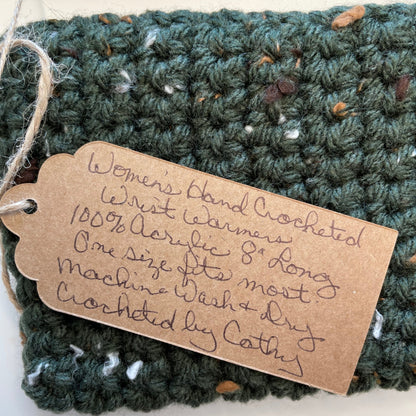 Women's Hand Crocheted
Wrist Warmers
100% Acrylic 8" Long
One size fits most.
Machine Wash & Dry
Crocheted by Cathy